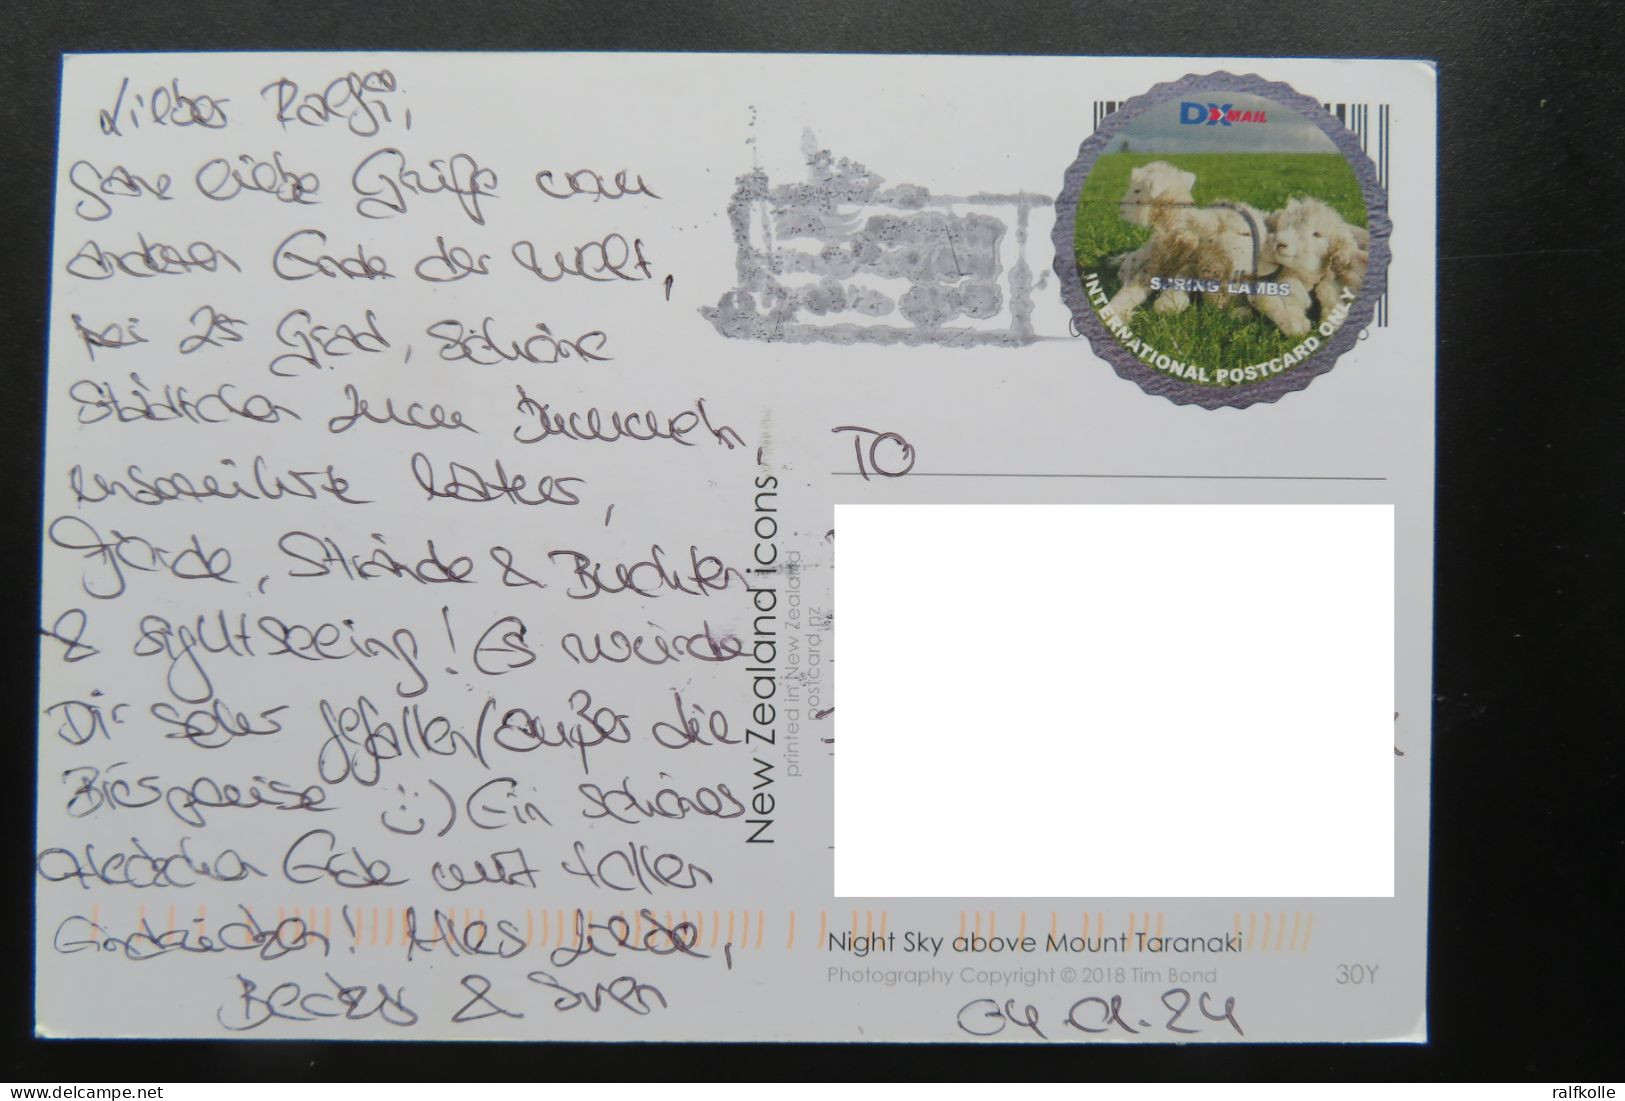 Lieber Ralfi,
ganz liebe Grüße vom
anderen Ende der Welt,
bei 25 Grad, schöne
Städtchen zum Bummeln,
Gärten, Strände & Buchten
& sightseeing! Es würde
Dir sehr gefallen (außer die
Bierpreise :-) Ein schönes
Fleckchen Erde mit tollen
Eindrücken! Alles Liebe,
& Sven
DX MAIL
SPRING LAMBS
INTERNATIONAL POSTCARD ONLY
TO
New Zealand icons
printed in New Zealand
postcard.nz
Night Sky above Mount Taranaki
Photography Copyright © 2018 Tim Bond
30Y
04.01.24
ralfkolle